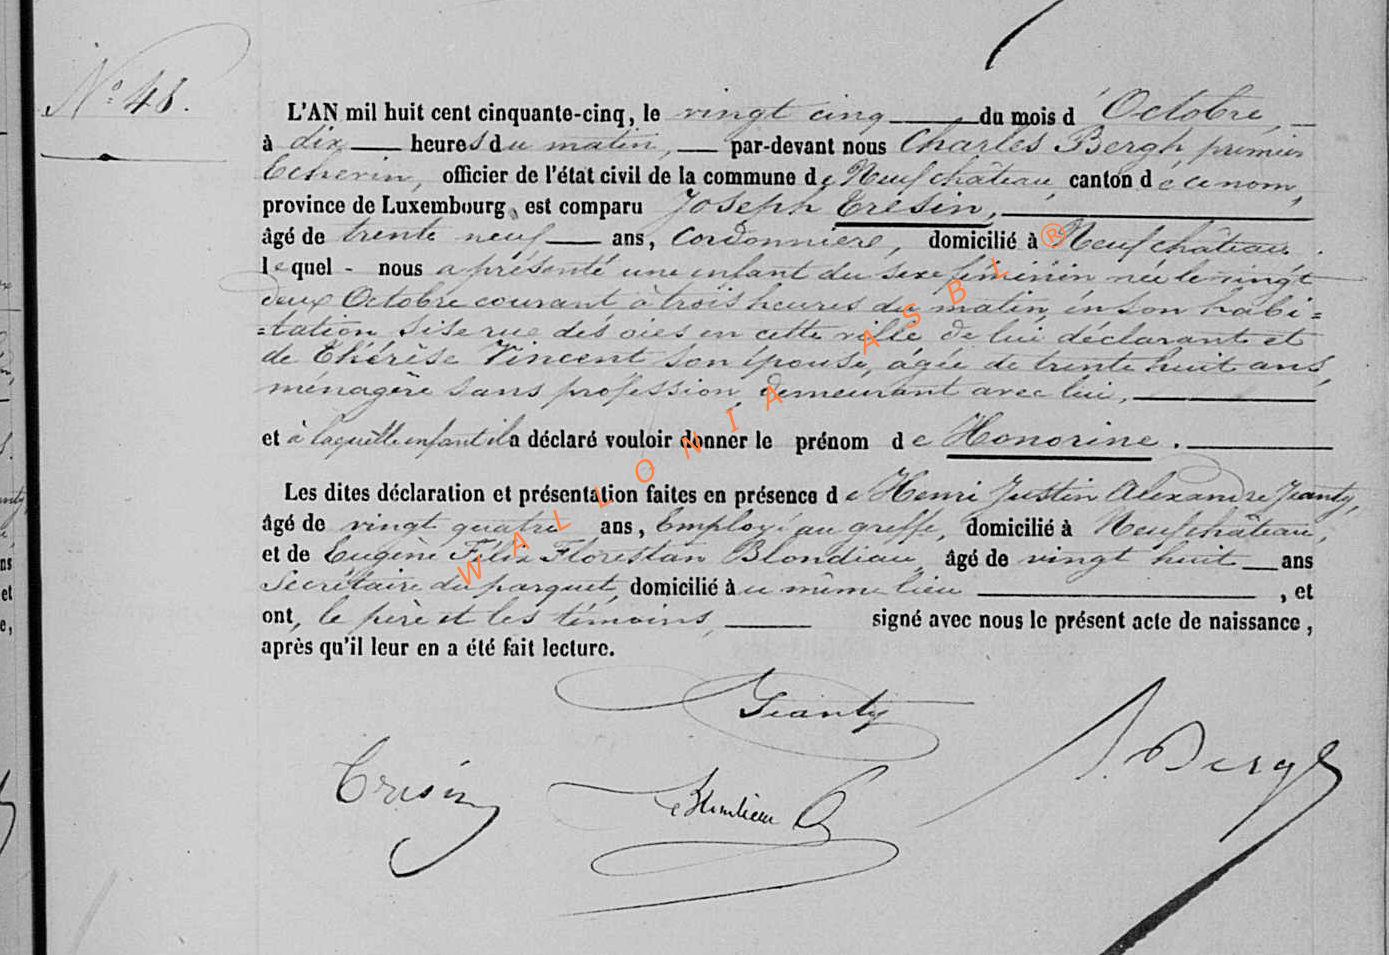 N° 48.
L'AN mil huit cent cinquante-cinq, le vingt cinq du mois d'Octobre,
à dix heures du matin, par-devant nous Charles Bergh, premier
Echevin, officier de l'état civil de la commune de Neufchâteau, canton de ce nom,
province de Luxembourg, est comparu Joseph Trésin,
âgé de trente neuf ans, Cordonnière, domicilié à Neufchâteau.
lequel - nous a présenté une enfant du sexe féminin née le vingt
deux Octobre courant à trois heures du matin, en son habi=
=tation sise rue des oies en cette ville de lui déclarant et
de Thérèse Vincent son épouse, âgée de trente huit ans,
ménagère sans profession, demeurant avec lui,
et à laquelle enfant il a déclaré vouloir donner le prénom de Honorine.
Les dites déclaration et présentation faites en présence de Henri Justin Alexandre Jeanty,
âgé de vingt quatre ans, Employé au greffe, domicilié à Neufchâteau,
et de Eugène Félix Florestan Blondiau, âgé de vingt huit ans
Secrétaire du parquet, domicilié au même lieu, et
ont, le père et les témoins, signé avec nous le présent acte de naissance,
après qu'il leur en a été fait lecture.
Jeanty
Trésin
Bergh
WALLONIA ASBL ®